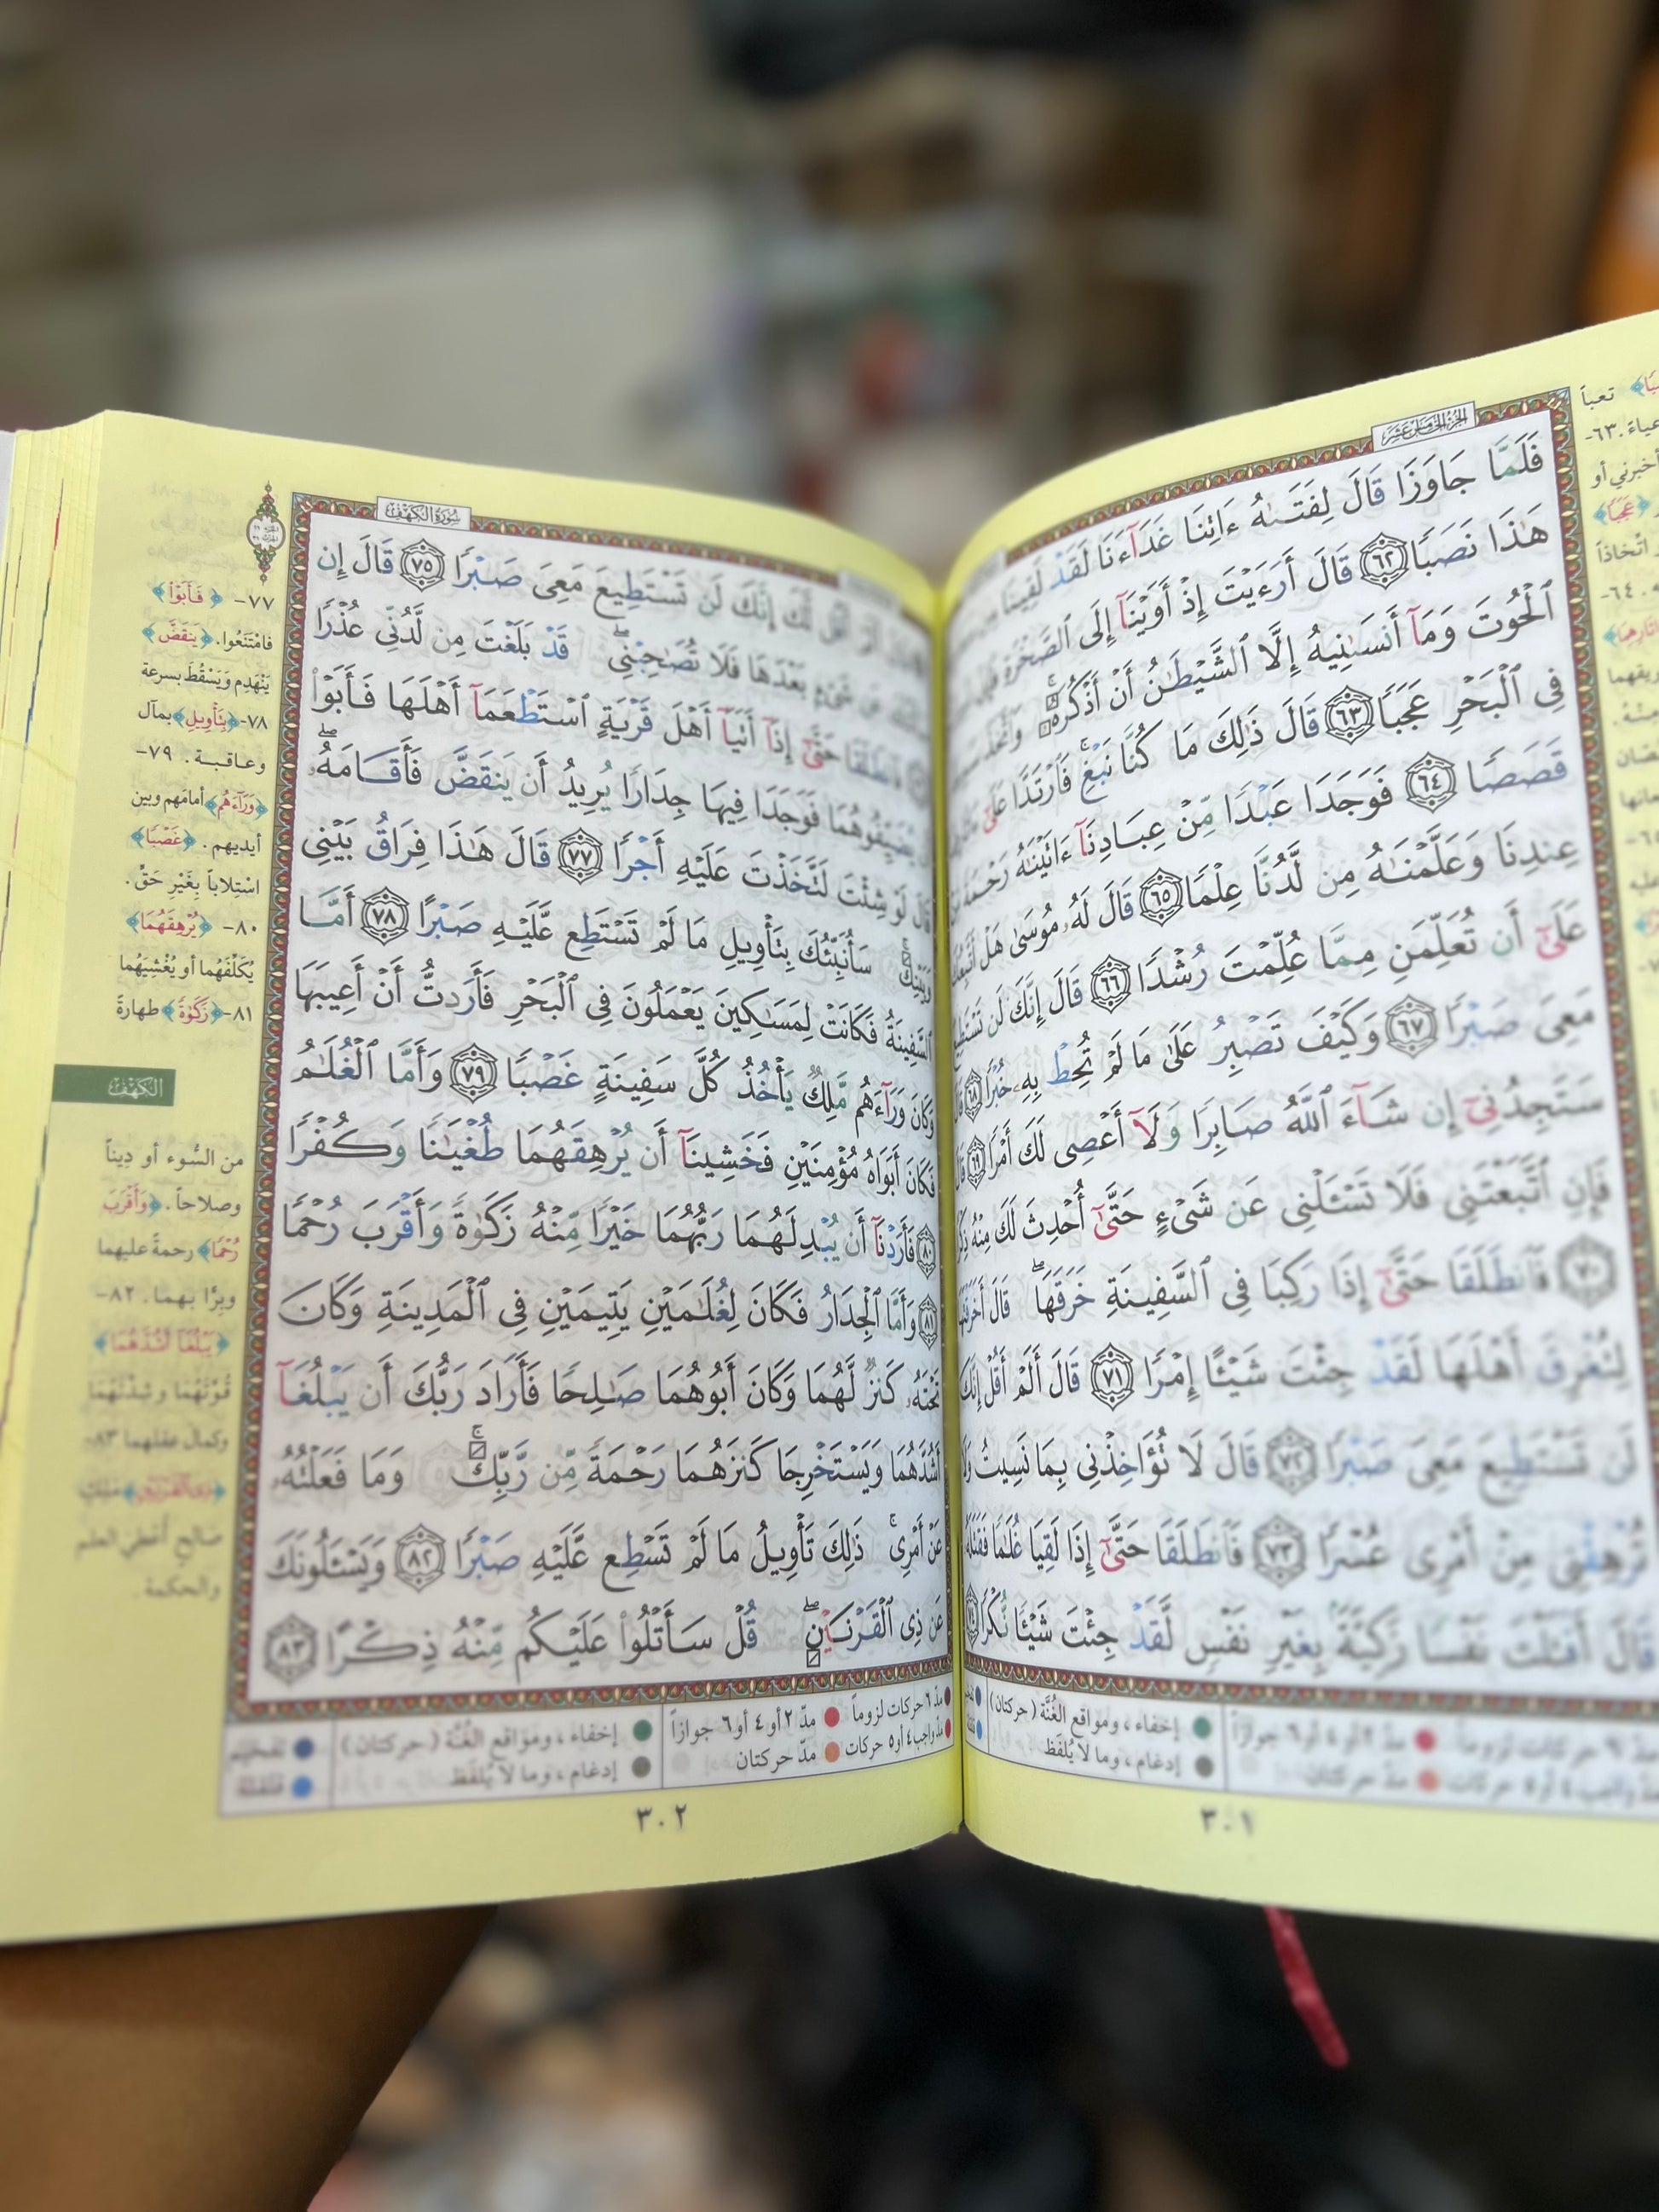 الجزء الخامس عشر
فَلَمَّا جَاوَزَا قَالَ لِفَتَىٰهُ ءَاتِنَا غَدَآءَنَا لَقَدْ لَقِينَا
هَٰذَا نَصَبًا ٦٢ قَالَ أَرَءَيْتَ إِذْ أَوَيْنَآ إِلَى ٱلصَّخْرَةِ
ٱلْحُوتَ وَمَآ أَنسَىٰنِيهُ إِلَّا ٱلشَّيْطَٰنُ أَنْ أَذْكُرَهُۥ وَٱتَّخَذَ
فِى ٱلْبَحْرِ عَجَبًا ٦٣ قَالَ ذَٰلِكَ مَا كُنَّا نَبْغِ فَٱرْتَدَّا عَلَىٰٓ
قَصَصًا ٦٤ فَوَجَدَا عَبْدًا مِّنْ عِبَادِنَآ ءَاتَيْنَٰهُ رَحْمَةً مِّنْ
عِندِنَا وَعَلَّمْنَٰهُ مِن لَّدُنَّا عِلْمًا ٦٥ قَالَ لَهُۥ مُوسَىٰ هَلْ أَتَّبِعُكَ
عَلَىٰٓ أَن تُعَلِّمَنِ مِمَّا عُلِّمْتَ رُشْدًا ٦٦ قَالَ إِنَّكَ لَن تَسْتَطِيعَ
مَعِىَ صَبْرًا ٦٧ وَكَيْفَ تَصْبِرُ عَلَىٰ مَا لَمْ تُحِطْ بِهِۦ خُبْرًا ٦٨ قَالَ
سَتَجِدُنِىٓ إِن شَآءَ ٱللَّهُ صَابِرًا وَلَآ أَعْصِى لَكَ أَمْرًا ٦٩ قَالَ
فَإِنِ ٱتَّبَعْتَنِى فَلَا تَسْـَٔلْنِى عَن شَىْءٍ حَتَّىٰٓ أُحْدِثَ لَكَ مِنْهُ ذِكْرًا
٧٠ فَٱنطَلَقَا حَتَّىٰٓ إِذَا رَكِبَا فِى ٱلسَّفِينَةِ خَرَقَهَا ۖ قَالَ أَخَرَقْتَهَا
لِتُغْرِقَ أَهْلَهَا لَقَدْ جِئْتَ شَيْـًٔا إِمْرًا ٧١ قَالَ أَلَمْ أَقُلْ إِنَّكَ
لَن تَسْتَطِيعَ مَعِىَ صَبْرًا ٧٢ قَالَ لَا تُؤَاخِذْنِى بِمَا نَسِيتُ وَلَا
تُرْهِقْنِى مِنْ أَمْرِى عُسْرًا ٧٣ فَٱنطَلَقَا حَتَّىٰٓ إِذَا لَقِيَا غُلَٰمًا فَقَتَلَهُۥ
قَالَ أَقَتَلْتَ نَفْسًا زَكِيَّةًۢ بِغَيْرِ نَفْسٍ لَّقَدْ جِئْتَ شَيْـًٔا نُّكْرًا ٧٤
إخفاء ، ومواقع الغُنَّة ( حركتان )
إدغام ، وما لا يُلفَظ
٣٠١
تعباً
٦٣-
أخبرني أو
﴿عَجَبًا﴾
اتّخاذاً
٦٤-
سُورَةُ الكَهْفِ
لَّكَ إِنَّكَ لَن تَسْتَطِيعَ مَعِىَ صَبْرًا ٧٥ قَالَ إِن
شَىْءٍۭ بَعْدَهَا فَلَا تُصَٰحِبْنِى ۖ قَدْ بَلَغْتَ مِن لَّدُنِّى عُذْرًا
فَٱنطَلَقَا حَتَّىٰٓ إِذَآ أَتَيَآ أَهْلَ قَرْيَةٍ ٱسْتَطْعَمَآ أَهْلَهَا فَأَبَوْا۟
يُضَيِّفُوهُمَا فَوَجَدَا فِيهَا جِدَارًا يُرِيدُ أَن يَنقَضَّ فَأَقَامَهُۥ ۖ
قَالَ لَوْ شِئْتَ لَتَّخَذْتَ عَلَيْهِ أَجْرًا ٧٧ قَالَ هَٰذَا فِرَاقُ بَيْنِى
وَبَيْنِكَ ۚ سَأُنَبِّئُكَ بِتَأْوِيلِ مَا لَمْ تَسْتَطِع عَّلَيْهِ صَبْرًا ٧٨ أَمَّا
ٱلسَّفِينَةُ فَكَانَتْ لِمَسَٰكِينَ يَعْمَلُونَ فِى ٱلْبَحْرِ فَأَرَدتُّ أَنْ أَعِيبَهَا
وَكَانَ وَرَآءَهُم مَّلِكٌ يَأْخُذُ كُلَّ سَفِينَةٍ غَصْبًا ٧٩ وَأَمَّا ٱلْغُلَٰمُ
فَكَانَ أَبَوَاهُ مُؤْمِنَيْنِ فَخَشِينَآ أَن يُرْهِقَهُمَا طُغْيَٰنًا وَكُفْرًا
٨٠ فَأَرَدْنَآ أَن يُبْدِلَهُمَا رَبُّهُمَا خَيْرًا مِّنْهُ زَكَوٰةً وَأَقْرَبَ رُحْمًا
٨١ وَأَمَّا ٱلْجِدَارُ فَكَانَ لِغُلَٰمَيْنِ يَتِيمَيْنِ فِى ٱلْمَدِينَةِ وَكَانَ
تَحْتَهُۥ كَنزٌ لَّهُمَا وَكَانَ أَبُوهُمَا صَٰلِحًا فَأَرَادَ رَبُّكَ أَن يَبْلُغَآ
أَشُدَّهُمَا وَيَسْتَخْرِجَا كَنزَهُمَا رَحْمَةً مِّن رَّبِّكَ ۚ وَمَا فَعَلْتُهُۥ
عَنْ أَمْرِى ۚ ذَٰلِكَ تَأْوِيلُ مَا لَمْ تَسْطِع عَّلَيْهِ صَبْرًا ٨٢ وَيَسْـَٔلُونَكَ
عَن ذِى ٱلْقَرْنَيْنِ ۖ قُلْ سَأَتْلُوا۟ عَلَيْكُم مِّنْهُ ذِكْرًا ٨٣
مدّ ٦ حركات لزوماً مدّ ٢ أو ٤ أو ٦ جوازاً إخفاء ، ومواقع الغُنَّة ( حركتان ) تفخيم
مدّ واجب ٤ أو ٥ حركات مدّ حركتان إدغام ، وما لا يُلفَظ قلقلة
٣٠٢
٧٧- ﴿فَأَبَوْا۟﴾
فامْتَنَعُوا. ﴿يَنقَضَّ﴾
يَنْهَدِم وَيَسْقُطَ بسرعة
٧٨-﴿بِتَأْوِيلِ﴾ بمآل
وعاقبة. ٧٩-
﴿وَرَآءَهُم﴾ أمامَهم وبين
أيديهم. ﴿غَصْبًا﴾
اسْتِلاباً بِغَيْرِ حَقٍّ.
٨٠- ﴿يُرْهِقَهُمَا﴾
يُكَلِّفَهُما أو يُغْشِيَهُما
٨١-﴿زَكَوٰةً﴾ طهارةً
الكهف
من السُّوء أو دِيناً
وصلاحاً. ﴿وَأَقْرَبَ
رُحْمًا﴾ رحمةً عليهما
وبِرًّا بهما. ٨٢-
﴿يَبْلُغَآ أَشُدَّهُمَا﴾
قُوَّتَهُما وشِدَّتَهُما
وكمال عقلهما ٨٣-
﴿ذِى ٱلْقَرْنَيْنِ﴾ مَلِكٍ
صالحٍ أُعْطِيَ العلم
والحكمة.